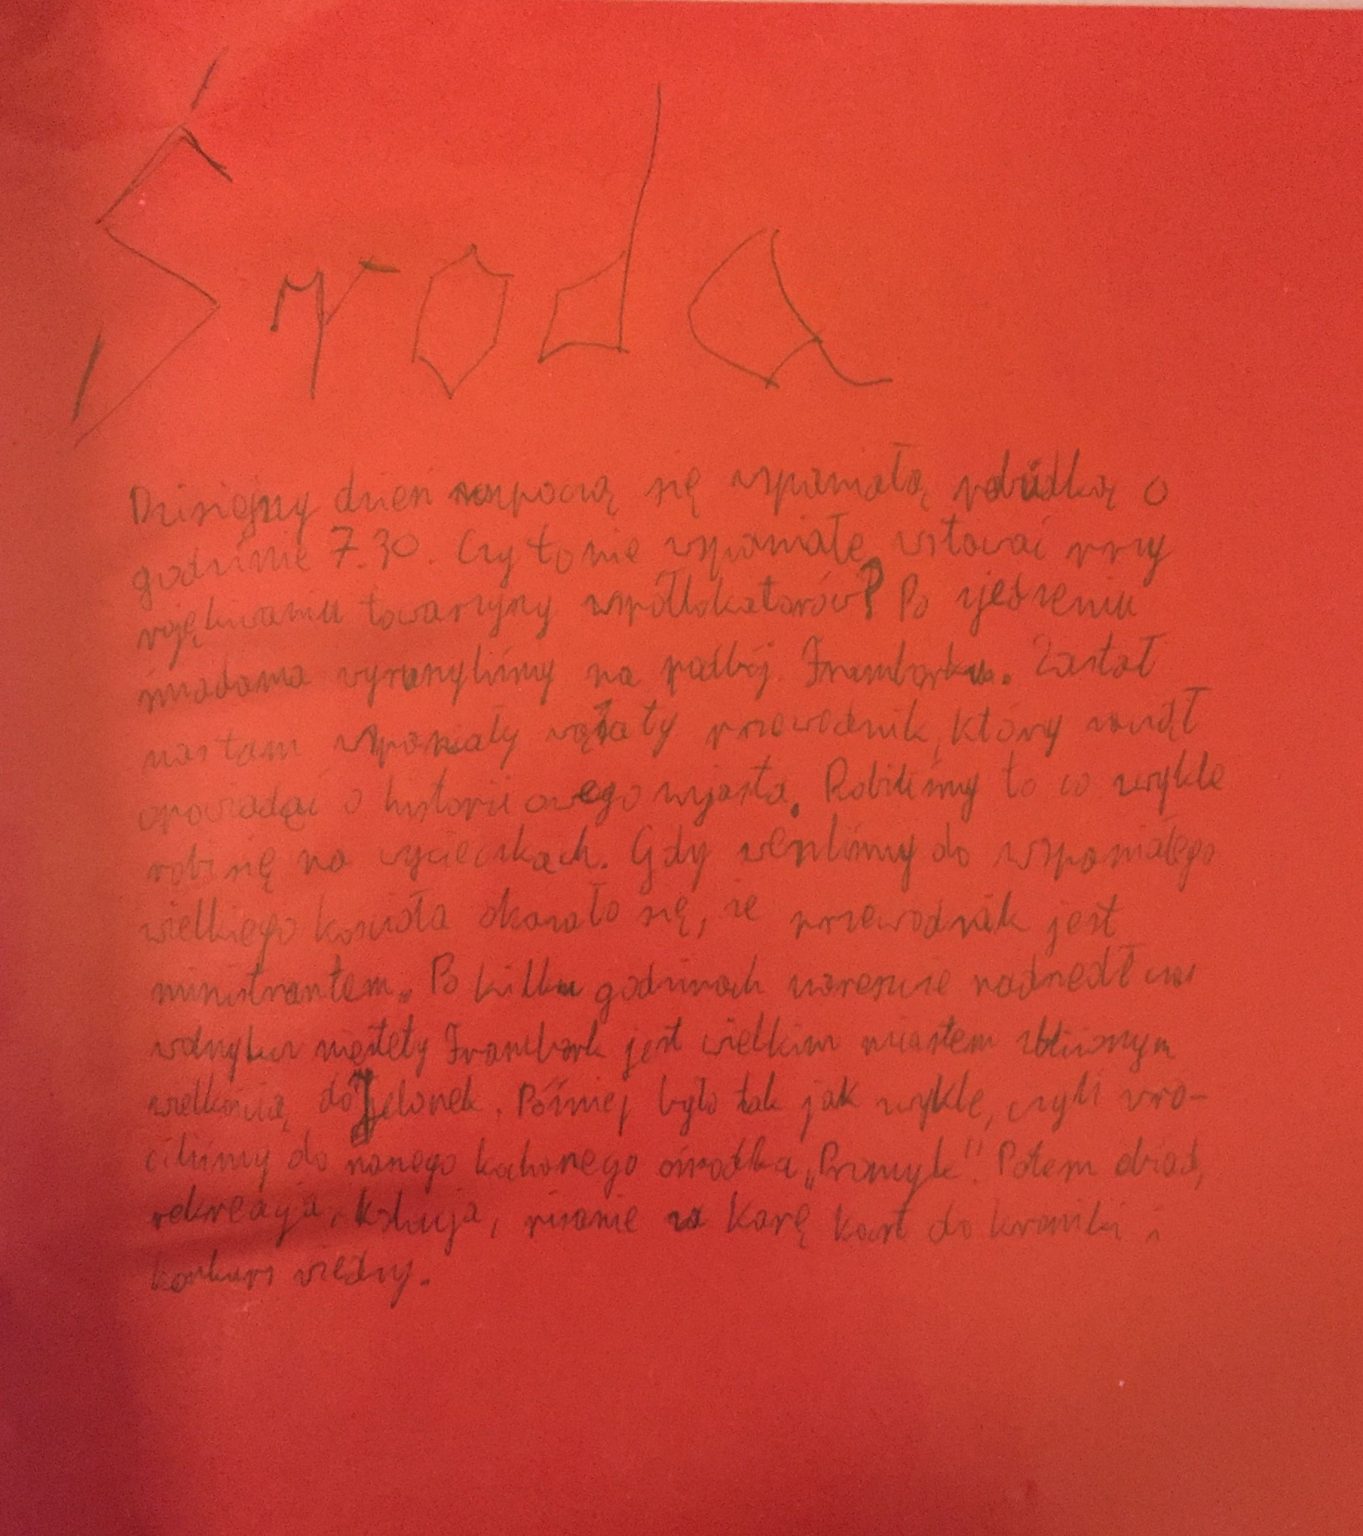 Środa
Dzisiejszy dzień rozpoczą się wspaniałą pobudką o
godzinie 7.30. Czy to nie wspaniałe wstawać przy
pojękiwaniu towarzyszy współlokatorów? Po zjedzeniu
śniadania wyruszyliśmy na podbój Fromborka. Zastał
nas tam wspaniały wąsaty przewodnik, który zaczął
opowiadać o historii owego miasta. Robiliśmy to co zwykle
robi się na wycieczkach. Gdy weszliśmy do wspaniałego
wielkiego kościoła okazało się, że przewodnik jest
ministrantem. Po kilku godzinach nareszcie nadszedł czas
niestety Frombork jest wielkim miastem zbliżonym
wielkością do Jelonek. Później było tak jak zwykle, czyli wró-
ciliśmy do naszego kochanego ośrodka "Promyk". Potem obiad,
rekreacja, kolacja, pisanie za karę kart do kroniki i
konkurs wiedzy.